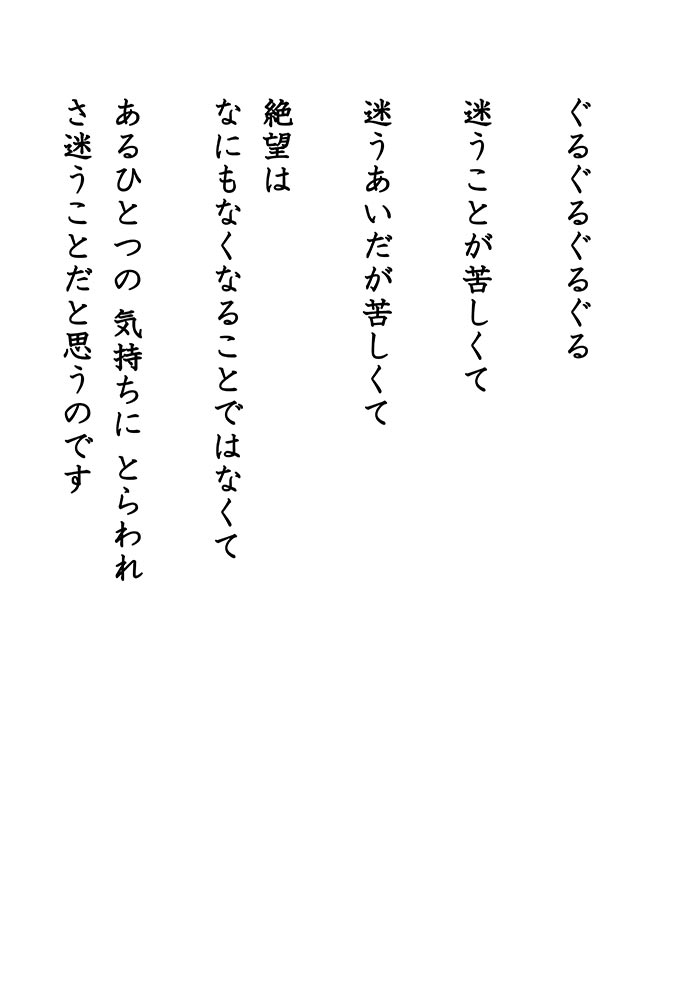 ぐるぐるぐるぐる
迷うことが苦しくて
迷うあいだが苦しくて
絶望は
なにもなくなることではなくて
あるひとつの 気持ちに とらわれ
さ迷うことだと思うのです